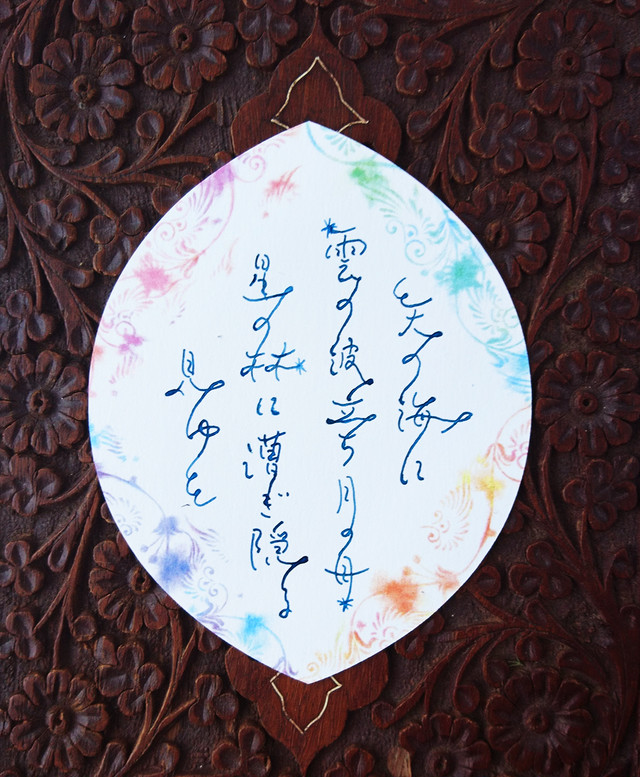 天の海に
*雲の波立ち月の舟*
星の林*に漕ぎ隠る
見ゆを